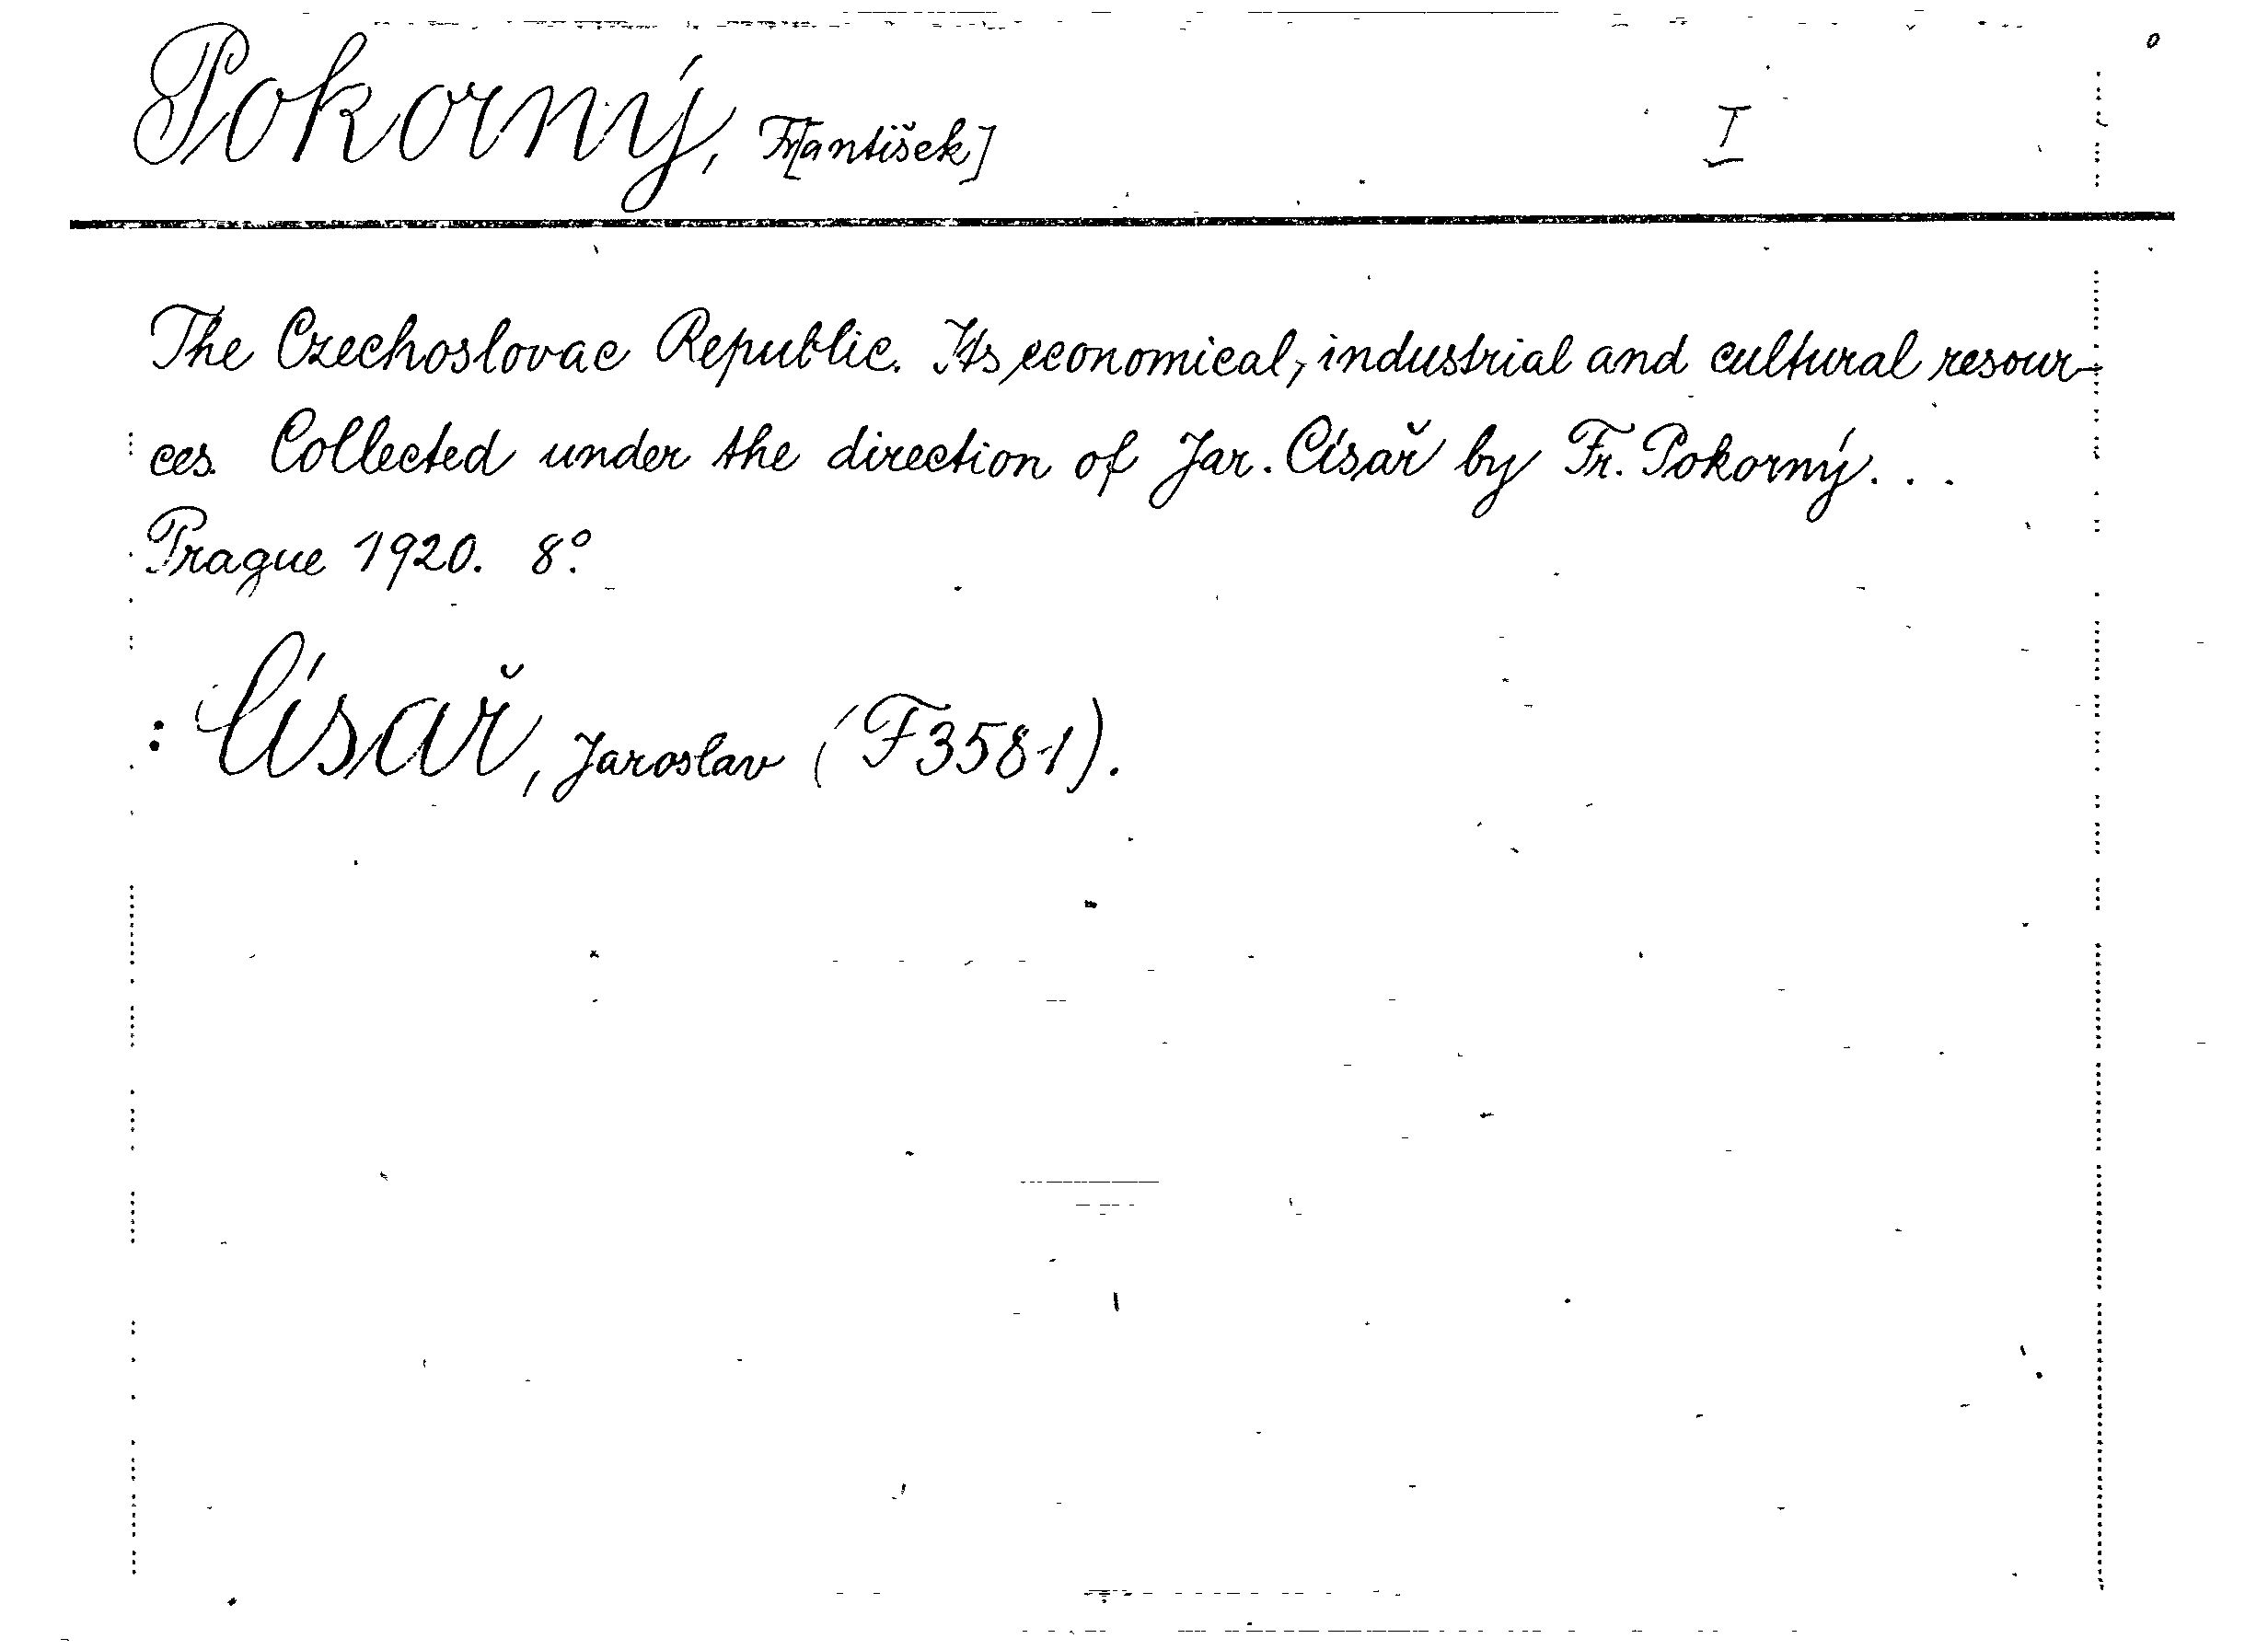 Pokorný, Fr[antišek] I
The Czechoslovac Republic. Its economical, industrial and cultural resour-
ces. Collected under the direction of Jar. Císař by Fr. Pokorný...
Prague 1920. 8°.
: Císař, Jaroslav (F 3581).